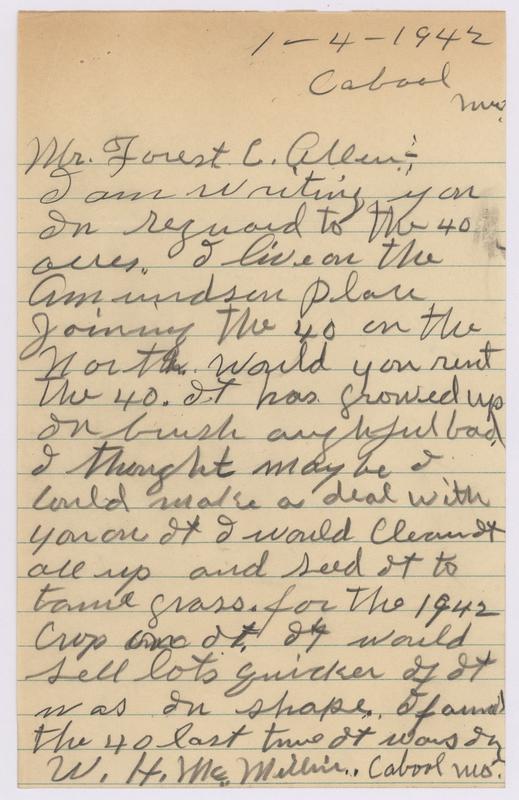 1-4-1942
Cabool
Mo.
Mr. Forest C. Allen;
I am writing you
In reguard to the 40
acres. I live on the
Amundson place
Joining the 40 on the
North. Would you rent
the 40. It has growed up
In brush aughful bad
I thought maybe I
could make a deal with
you on It I would Clean It
all up and seed It to
tame grass. for the 1942
Crop on It. It would
sell lots quicker If It
was In shape. I farmed
the 40 last time It was In
W. H. McMillin. Cabool Mo.